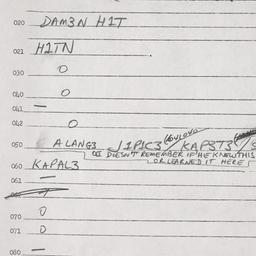 020 DAM3N H1T
021 H1TN
030 O
040 O
041 —
042 O
050 ALANG3 J1P1C3/ KAP3T3/S
DOESN'T REMEMBER IF HE KNEW THIS
OR LEARNED IT HERE
060 KAPAL3
061 —
070 O
071 O
080 —